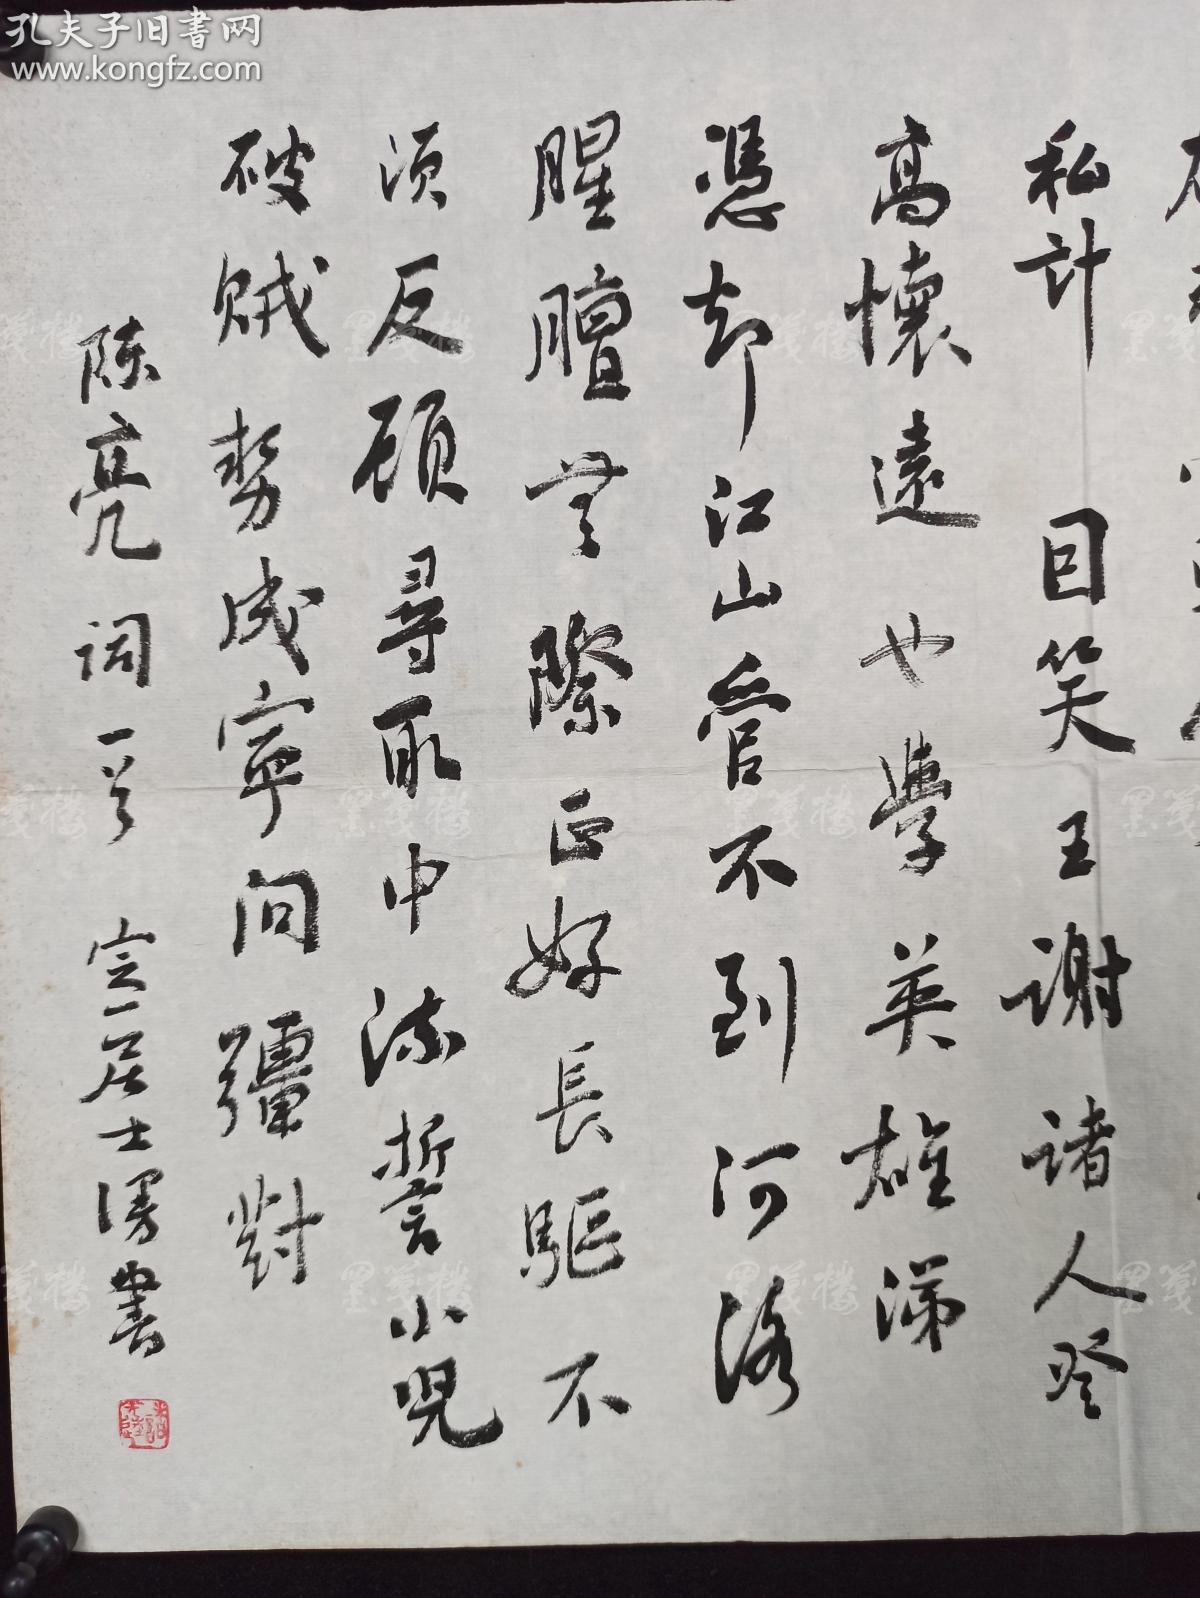 孔夫子旧書网
www.kongfz.com
私計 因笑王謝諸人登
高懷遠也學英雄涕
憑却江山管不到河洛
腥膻無際正好長驅不
須反顧尋取中流誓小兒
破賊勢成寧问彊對
陈亮词一首 定一居士漫書
墨笺楼